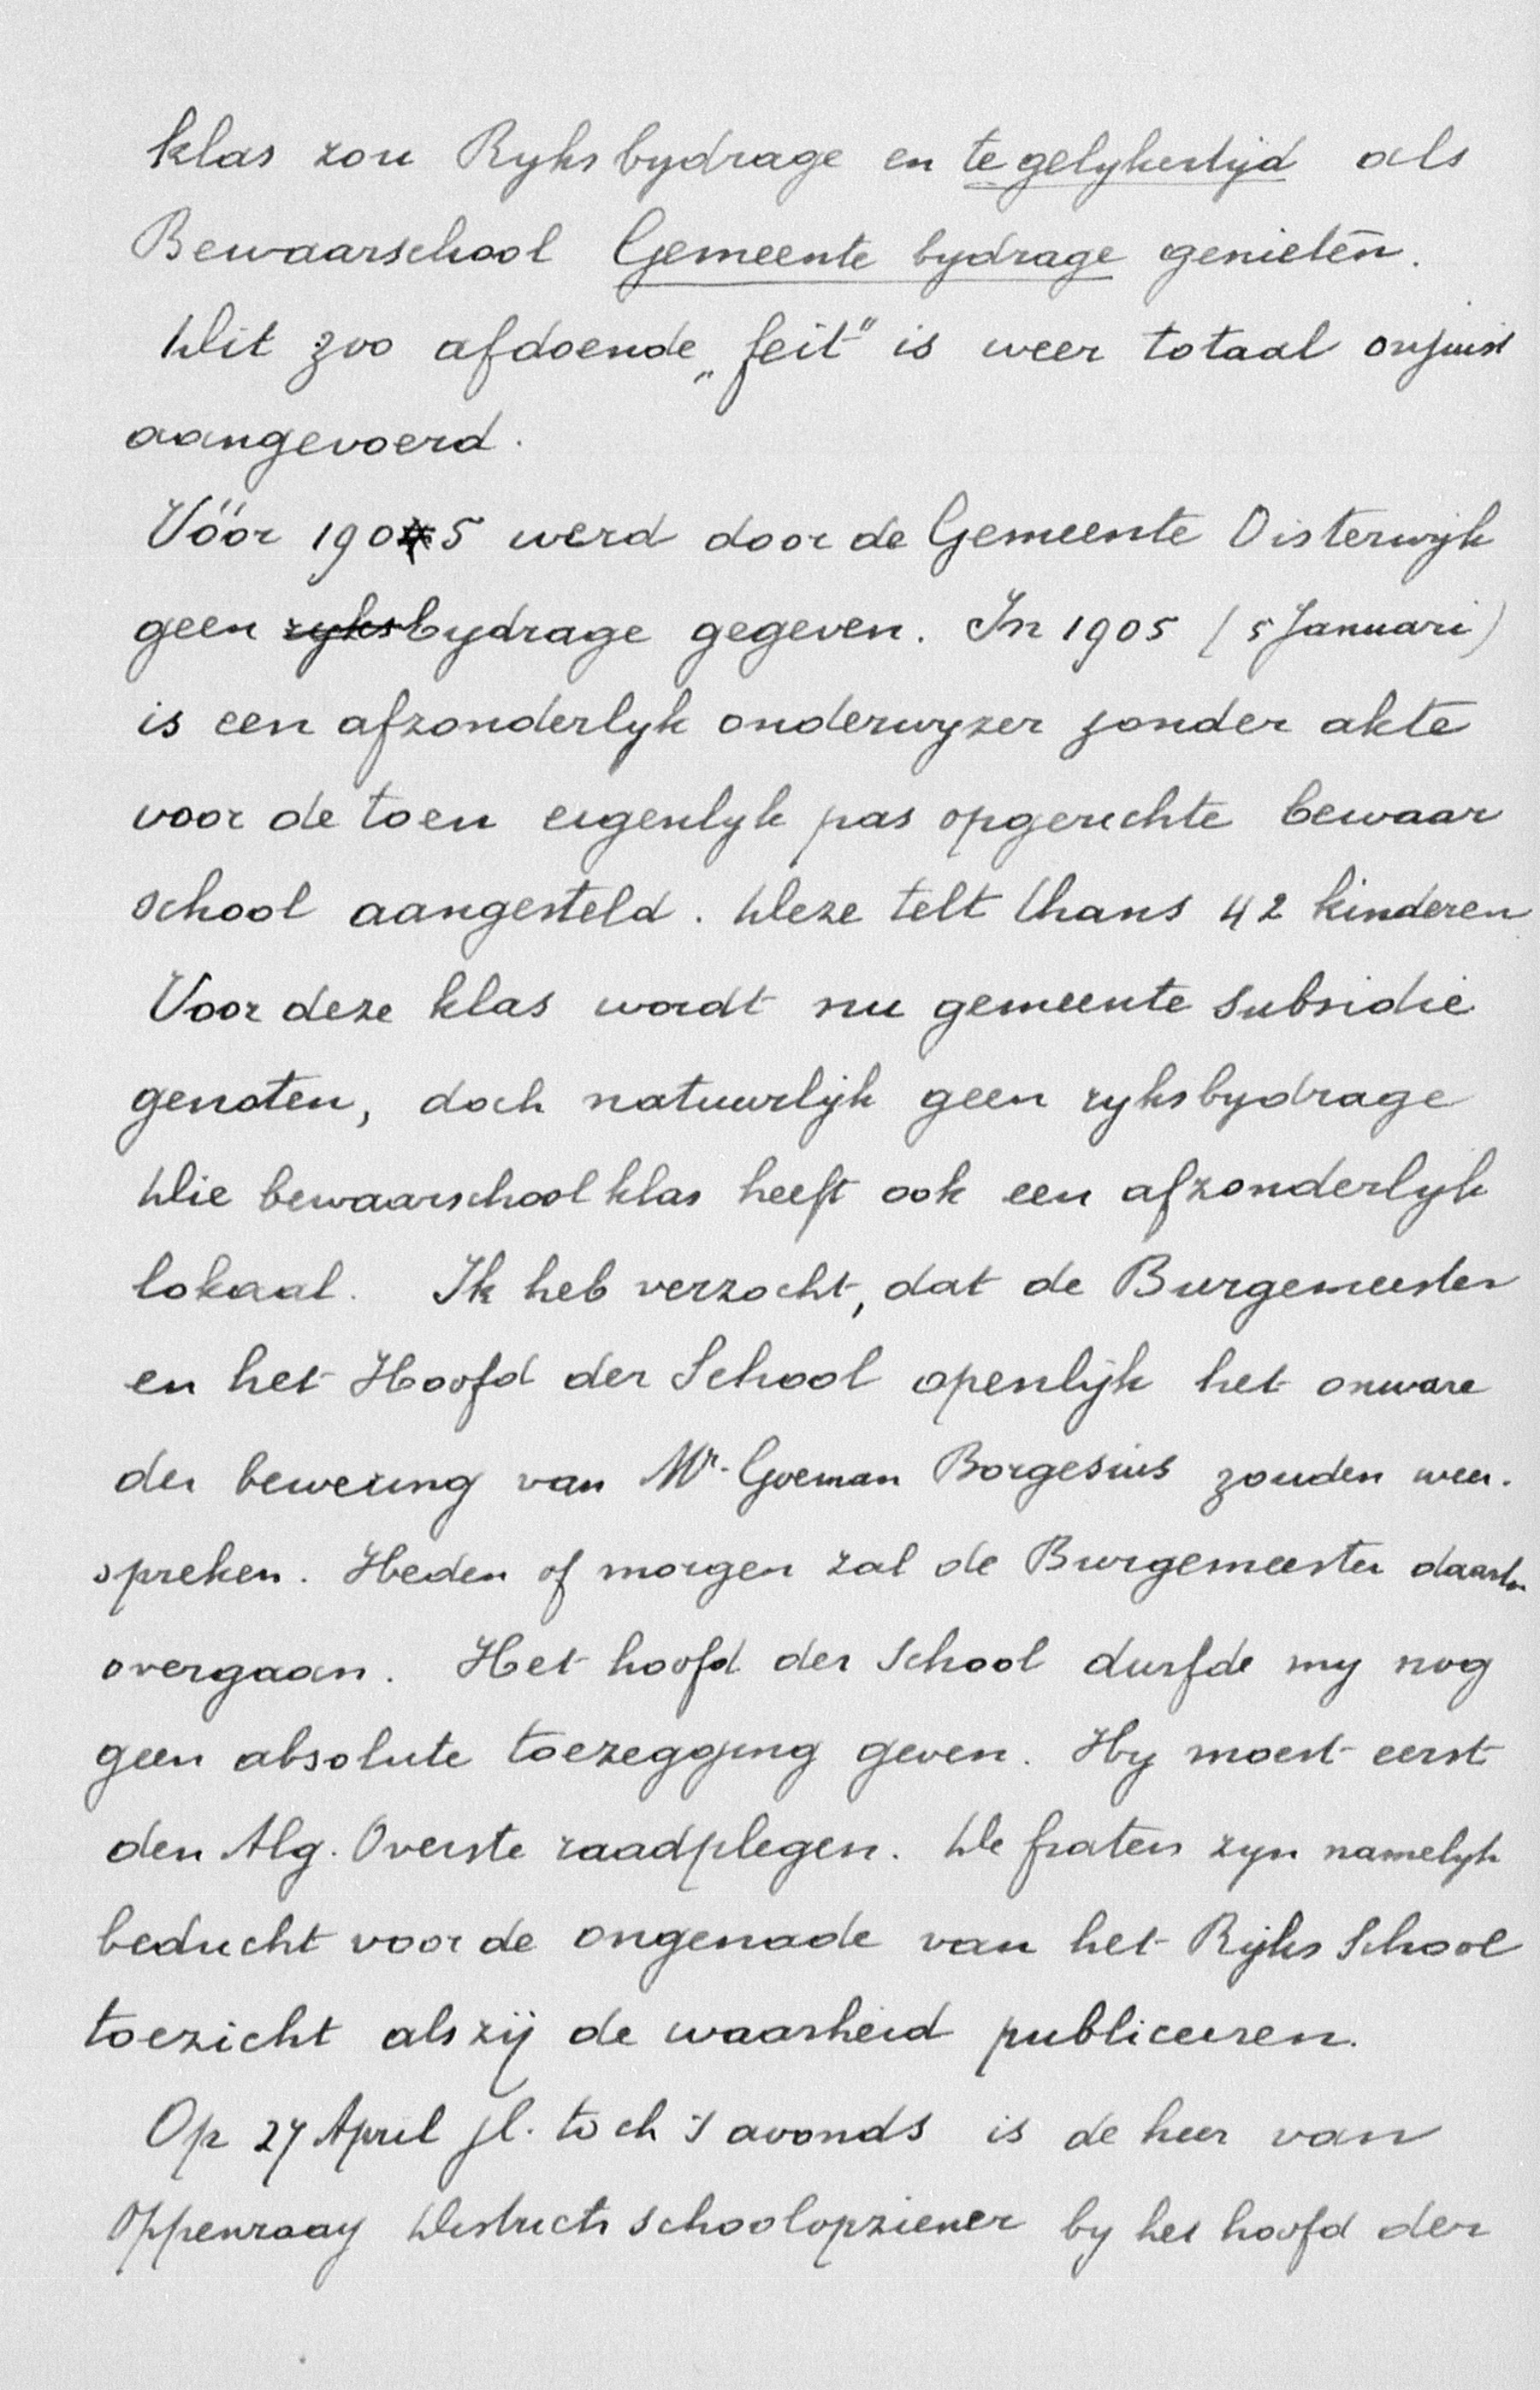 klas zou Ryksbydrage en te gelykertijd als
Bewaarschool Gemeente bydrage genieten.
Dit zoo afdoende „feit" is weer totaal onjuist
aangevoerd.
Vóór 1905 werd door de Gemeente Oisterwijk
geen ryksbydrage gegeven. In 1905 (5 Januari)
is een afzonderlyk onderwyzer zonder akte
voor de toen eigenlyk pas opgerichte bewaar
school aangesteld. Deze telt thans 42 kinderen
Voor deze klas wordt nu gemeente subsidie
genoten, doch natuurlijk geen ryksbydrage
Die bewaarschool klas heeft ook een afzonderlyk
lokaal. Ik heb verzocht, dat de Burgemeester
en het Hoofd der School openlijk het onware
der bewering van Mr. Goeman Borgesius zouden weer-
spreken. Heden of morgen zal de Burgemeester daartoe
overgaan. Het hoofd der School durfde my nog
geen absolute toezegging geven. Hy moest eerst
den Alg. Overste raadplegen. De fraters zyn namelyk
beducht voor de ongenade van het Rijks School
toezicht als zij de waarheid publiceeren.
Op 27 April jl. toch 's avonds is de heer van
Oppenraay Districts schoolopziener by het hoofd der